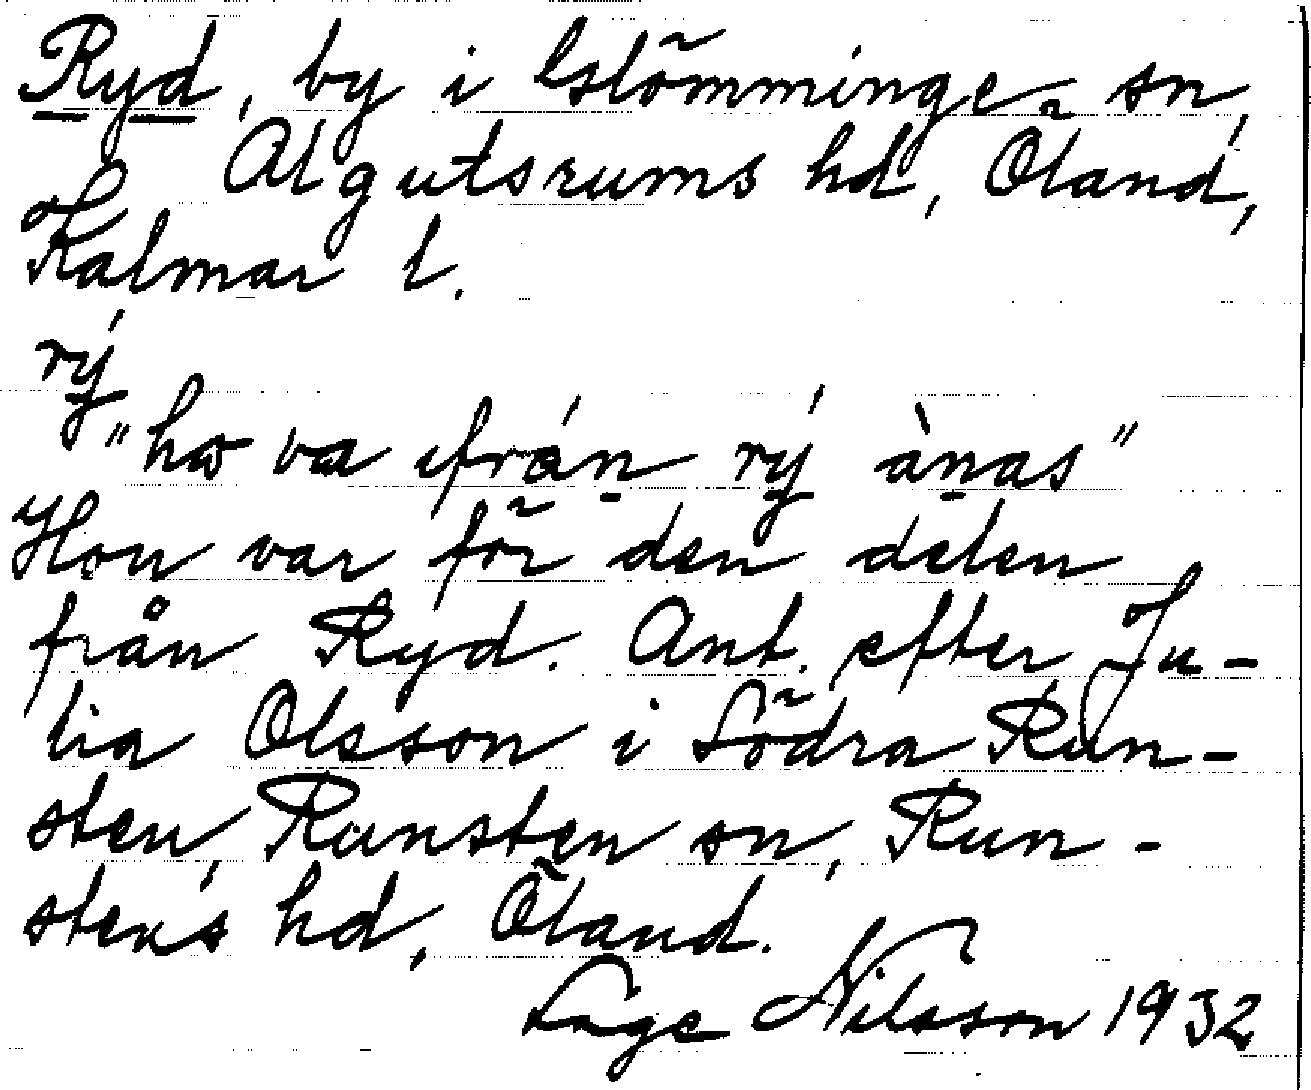 Ryd, by i Glömminge sn,
Algutsrums hd, Öland,
Kalmar l.
rý
"ho va ifrán rý ànas"
Hon var för den delen
från Ryd. Ant. efter Ju-
lia Olsson i Södra Run-
sten, Runsten sn, Run-
stens hd, Öland.
Lage Nilsson 1932